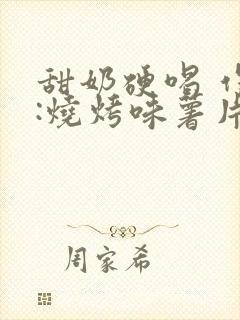 甜奶硬唱
:燒烤味薯片
周家希